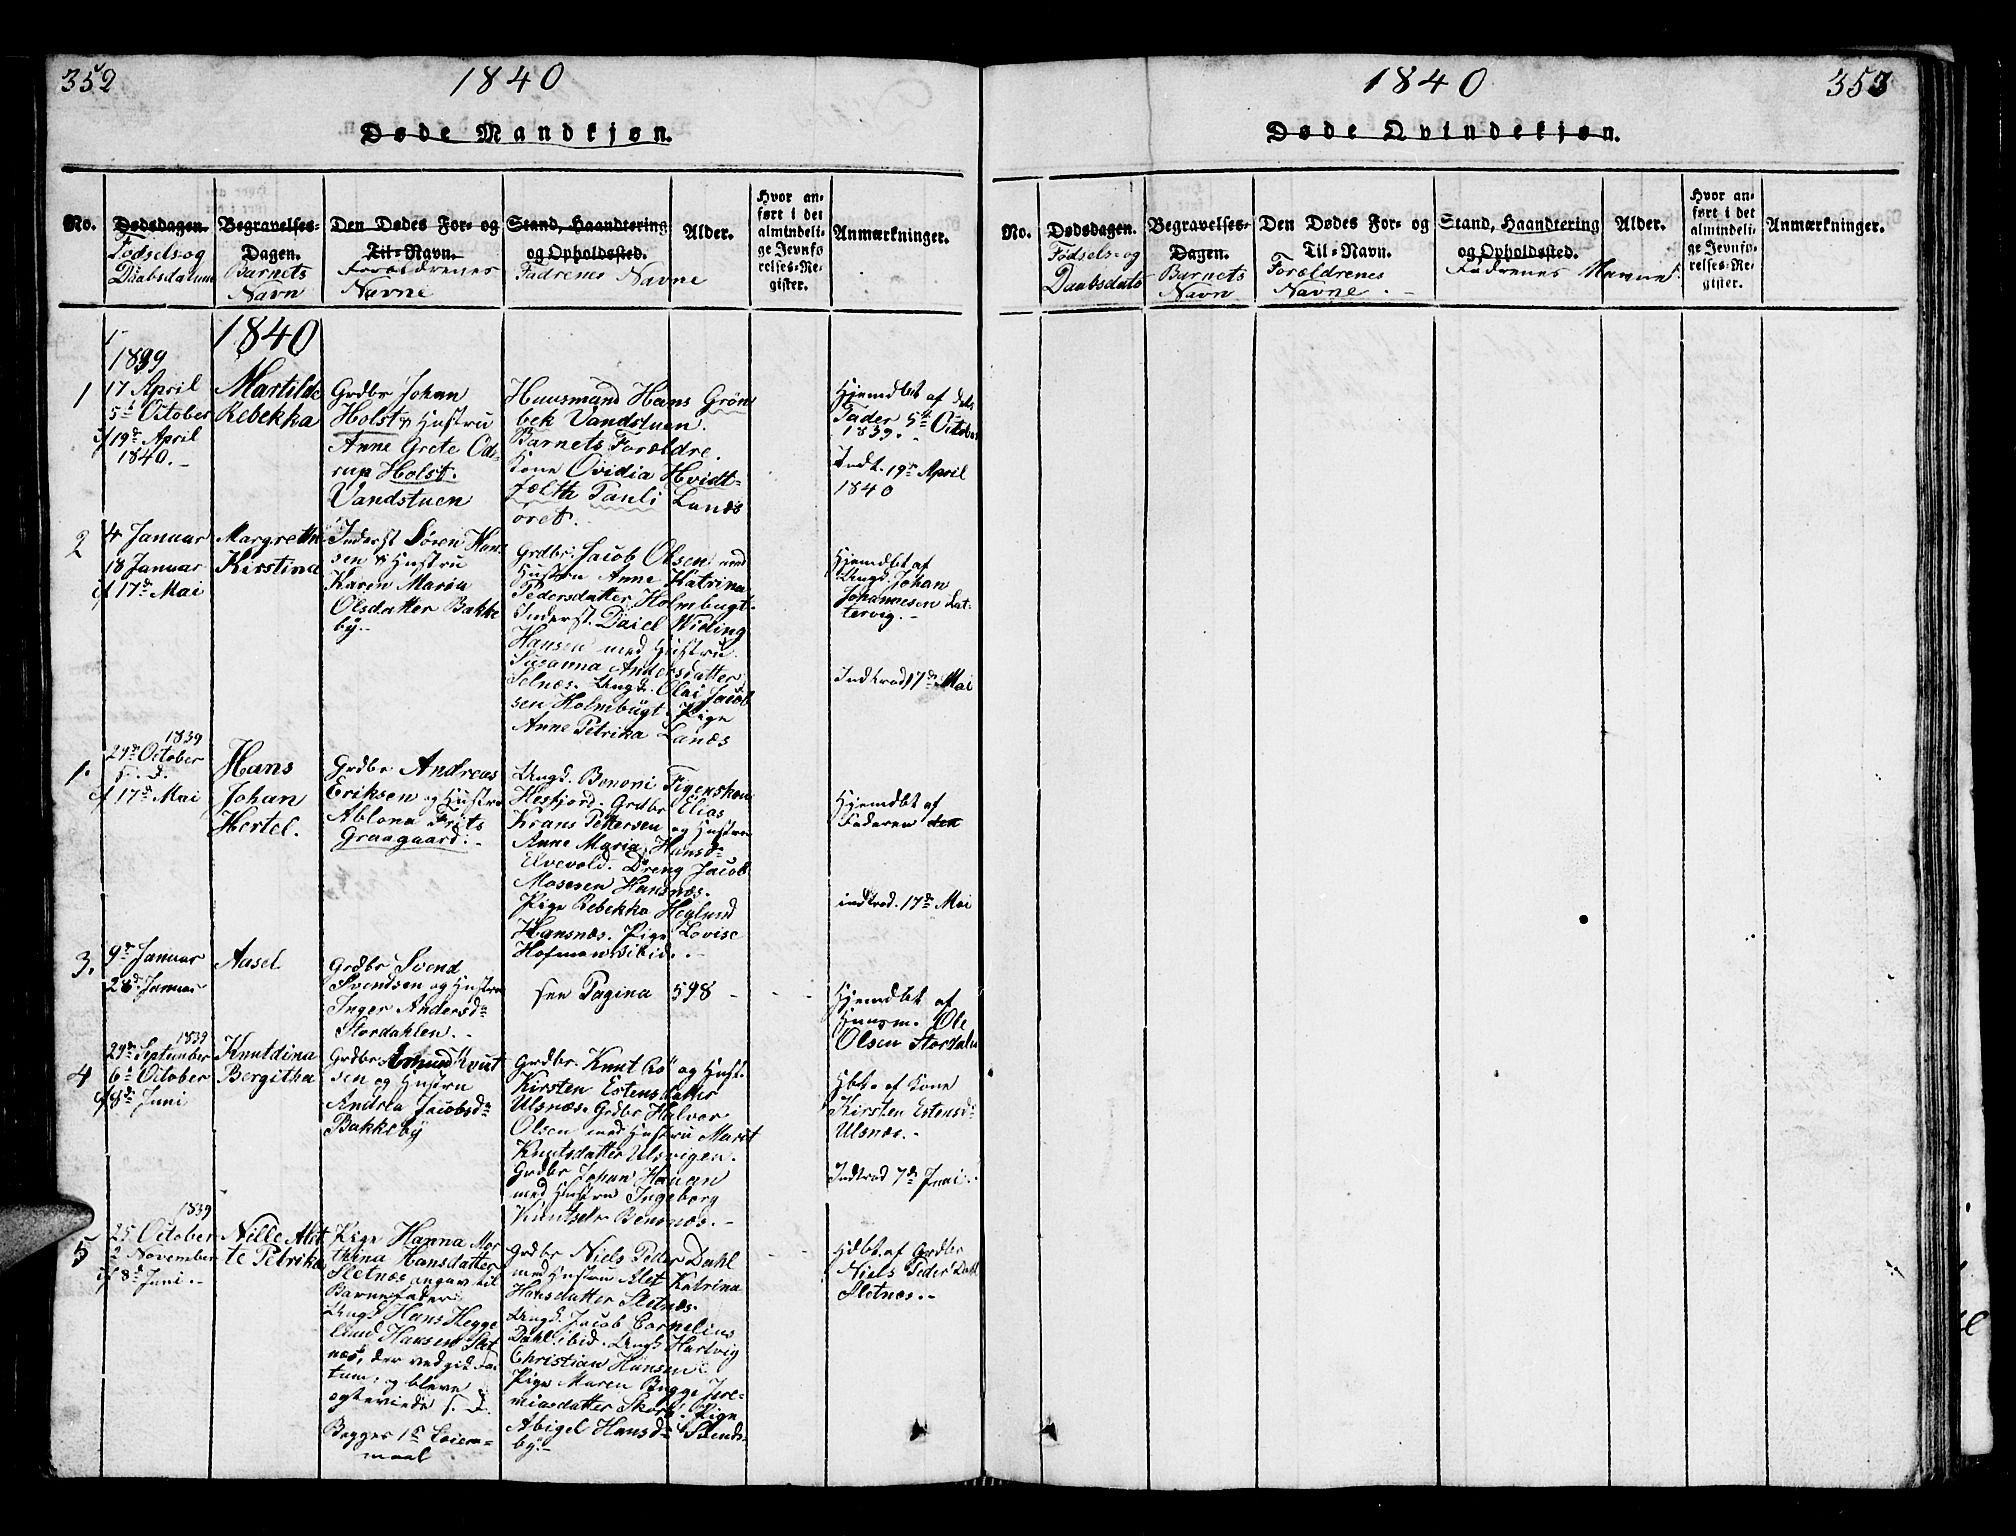 352
1840
Døde Mandkjøn.
No.
Dødsdagen.
Fødsels og
Daabsdatum
Begravelses-
Dagen.
Barnets
Navn
Den Dødes For- og
Til-Navn.
Forældrenes
Navne
Stand, Haandtering
og Opholdssted.
Fadrenes Navne
Alder.
Hvor an-
ført i det
almindeli-
ge Jevnfø-
relses-Re-
gister.
Anmærkninger.
1840
1
1839
17 April
5t October
if 19de April
1840.-
Martilde
Rebekka
Grdbr Johan
Holst & Hustru
Anne Grete Od-
rup Holst.
Vandstuen
Huusmand Hans Grön
bek Vandstuen.
Barnets Forældre.
Kone Ovidia Hvidt-
feldth Pauli Lands
öret.
Hjemdbt af
Fader 5te October
1839.-
Indt. 19de April
1840
2
4 Januar
18 Januar
if 17de Mai
Margrethe
Kirstina
Inderst Sören Han-
sen & Hustru
Karen Maria
Olsdatter Bakke
by.-
Grdbr. Jacob Olsen med
Hustru Anne Katrina
Pedersdatter Holmbugt.
Inderst. Daiel Widing
Hansen med Hustru
Susanna Andersdatter
Solnæs. Ungk. Olai Jacob
sen Holmbugt. Pige
Anne Petrika Lanæs
Hjemdbt af
Ungk. Johan
Johannesen Lat-
tervig.-
Indtrod 17de Mai
1.
1839
27de October
s. D.
if 17de Mai
Hans
Johan
Hertel.
Grdbr Andreas
Eriksen og Hustru
Ablona Frits
Graagaard.-
Ungk. Benoni Figenskou
Hesfjord. Grdbr Elias
Krans Pettersen og Hustru
Anne Maria Hansd-
Elvevold. Dreng Jacob
Mosesen Hansnæs.
Pige Rebekka Heglund
Hansnæs. Pige Lovise
Hofman ibid.-
Hjemdbt af
Faderen den
indtrod. 17de Mai
3.
9de Januar
28de Januar
Aasel
Grdbr Svend
Svendsen og Hustru
Inger Andersd-
Stordahlen.-
see Pagina 598 -
Hjemdbt af
Huusm. Ole
Olsen Stordalen
4
1839
29de September
6t October
if 8de Juni
Knutdina
Bergitha
Grdbr. Asmund Knut
sen og Hustru
Andrea Jacobsd-
Bakkeby
Grdbr. Knut Rö og Hust.
Kirsten Estensdatter
Ulsnæs. Grdbr Halvor
Olsen med Hustru Marit
Knutsdatter Ulsvigen.
Grdbr Johan Hauan
med Hustru Ingeborg
Knutsdr Bensnæs.-
Hbt. af Kone
Kirsten Estensd-
Ulsnæs.-
Indtrod 7de Juni.
5
1839
25 October
2 November
if 8de Juni.-
Nille Alet
te Petrika
Pige Hanna Mor
thina Hansdatter
Sletnæs, angav til
Barnefader
Ungk Hans Hegge
lund Hansen Slet
næs, der vedgik Fac
tum, og bleve
ægteviede s. D.
Begges 1ste Leier-
maal
Grdbr Niels Peder Dahl
med Hustru Alet Katrina
Hansdatter Sletnæs.
Ungk. Jacob Cornelius
Dahl ibid. Ungk Hartvig
Christian Hansen
Pige Maren Bugge Jere-
miasdatter Skorö. Pige
Abigel Hansd- Svends-
by.-
Hdbt. af Grdbr
Niels Peder Dahl
Sletnæs.-
1840
353
Døde Qvindekjøn.
No.
Dødsdagen.
Fødsels- og
Daabsdato
Begravelses-
Dagen.
Barnets
Navn
Den Dødes For- og
Til-Navn.
Forældrenes
Navne.
Stand, Haandtering
og Opholdssted.
Fadrenes Navne.
Alder.
Hvor an-
ført i det
almindeli-
ge Jevnfø-
relses-Re-
gister.
Anmærkninger.